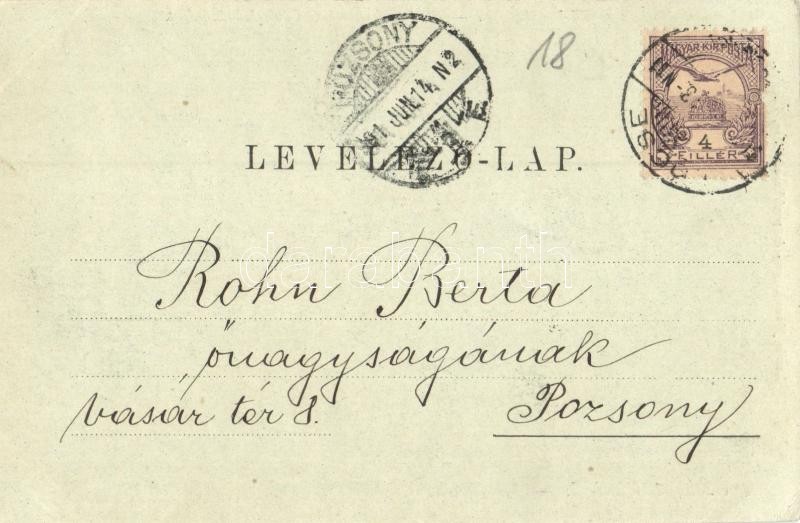 POZSONY
901 JUN.14. N2
E
18
MAGYAR KIR. POSTA
4
FILLÉR
LEVELEZŐ-LAP.
darabanth
Rohn Berta
őnagyságának
vásár tér 8.
Pozsony